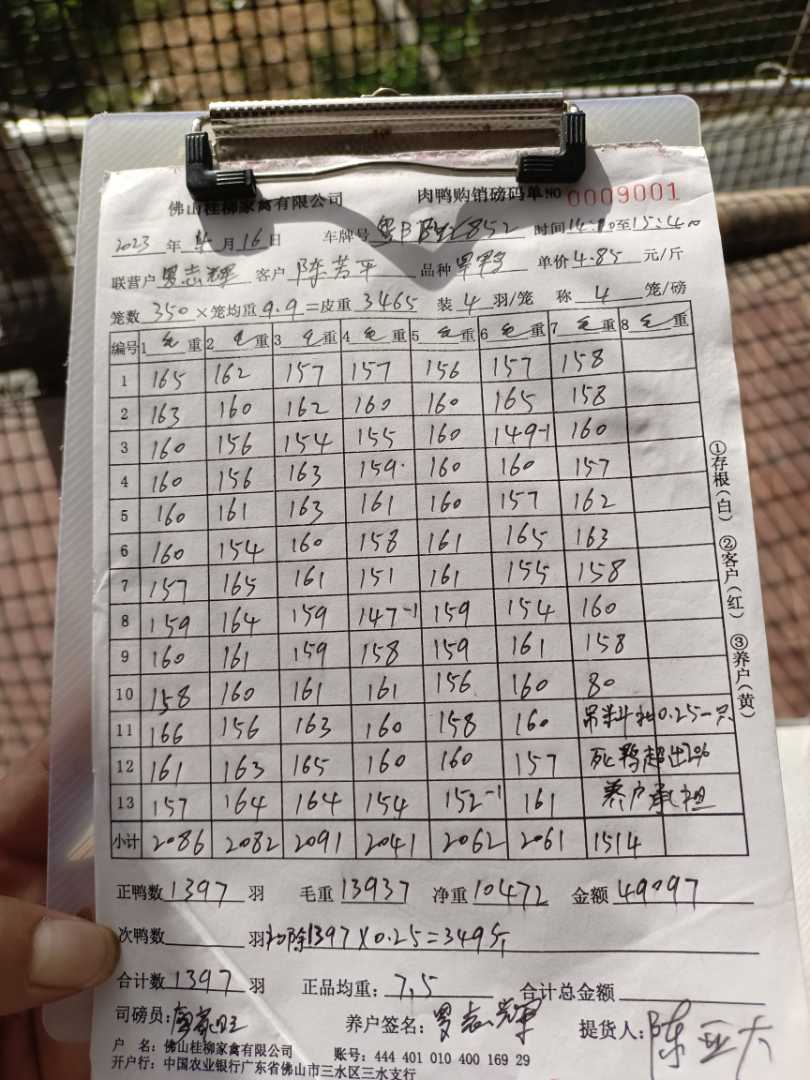 佛山桂柳家禽有限公司 肉鸭购销磅码单 NO 0009001
2023 年 月 16 日 车牌号 852 时间 至 15:40
联营户 罗志辉 客户 陈芳平 品种 单价 4.85 元/斤
笼数 350 ×笼均重 9.9 =皮重 3465 装 4 羽/笼 称 4 笼/磅
编号 1 毛重 2 毛重 3 毛重 4 毛重 5 毛重 6 毛重 7 毛重 8 毛重
1 165 162 157 157 156 157 158
2 163 160 162 160 160 165 158
3 160 156 154 155 160 149-1 160
4 160 156 163 159 160 160 157
5 160 161 163 161 160 157 162
6 160 154 160 158 161 165 163
7 157 165 161 151 161 155 158
8 159 164 159 147-1 159 154 160
9 160 161 159 158 159 161 158
10 158 160 161 161 156 160 80
11 166 156 163 160 158 160 吊料扣0.25一只
12 161 163 165 160 160 157 死鸭超出2%
13 157 164 164 154 152-1 161 养户承担
小计 2086 2082 2091 2041 2062 2061 1514
正鸭数 1397 羽 毛重 13937 净重 10472 金额 49097
次鸭数 羽 扣除1397×0.25=349斤
合计数 1397 羽 正品均重: 7.5 合计总金额
司磅员: 养户签名: 罗志辉 提货人: 陈亚大
户 名: 佛山桂柳家禽有限公司 账号: 444 401 010 400 169 29
开户行: 中国农业银行广东省佛山市三水区三水支行
①存根(白) ②客户(红) ③养户(黄)